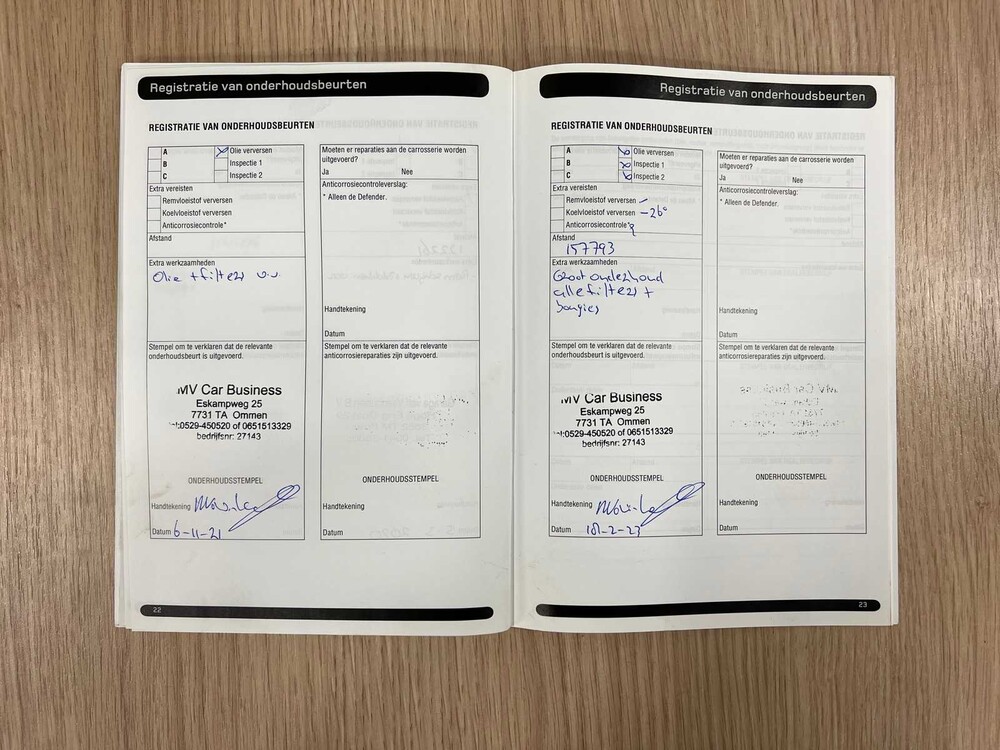 Registratie van onderhoudsbeurten
REGISTRATIE VAN ONDERHOUDSBEURTEN
A
Olie verversen
B
Inspectie 1
C
Inspectie 2
Extra vereisten
Remvloeistof verversen
Koelvloeistof verversen
Anticorrosiecontrole*
Afstand
Extra werkzaamheden
Olie + filter v.v.
Stempel om te verklaren dat de relevante
onderhoudsbeurt is uitgevoerd.
MV Car Business
Eskampweg 25
7731 TA Ommen
tel:0529-450520 of 0651513329
bedrijfsnr: 27143
ONDERHOUDSSTEMPEL
Handtekening
Datum 6-11-21
Moeten er reparaties aan de carrosserie worden
uitgevoerd?
Ja Nee
Anticorrosiecontroleverslag:
* Alleen de Defender.
Handtekening
Datum
Stempel om te verklaren dat de relevante
anticorrosiereparaties zijn uitgevoerd.
ONDERHOUDSSTEMPEL
Handtekening
Datum
22
Registratie van onderhoudsbeurten
REGISTRATIE VAN ONDERHOUDSBEURTEN
A
Olie verversen
B
Inspectie 1
C
Inspectie 2
Extra vereisten
Remvloeistof verversen
Koelvloeistof verversen -26°
Anticorrosiecontrole*
Afstand
157793
Extra werkzaamheden
Groot onderhoud
alle filters +
bougies
Stempel om te verklaren dat de relevante
onderhoudsbeurt is uitgevoerd.
MV Car Business
Eskampweg 25
7731 TA Ommen
tel:0529-450520 of 0651513329
bedrijfsnr: 27143
ONDERHOUDSSTEMPEL
Handtekening
Datum
Moeten er reparaties aan de carrosserie worden
uitgevoerd?
Ja Nee
Anticorrosiecontroleverslag:
* Alleen de Defender.
Handtekening
Datum
Stempel om te verklaren dat de relevante
anticorrosiereparaties zijn uitgevoerd.
MV Car Business
ONDERHOUDSSTEMPEL
Handtekening
Datum
23